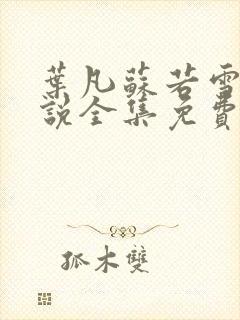 葉凡蘇若雪
說全集免費
孤木雙